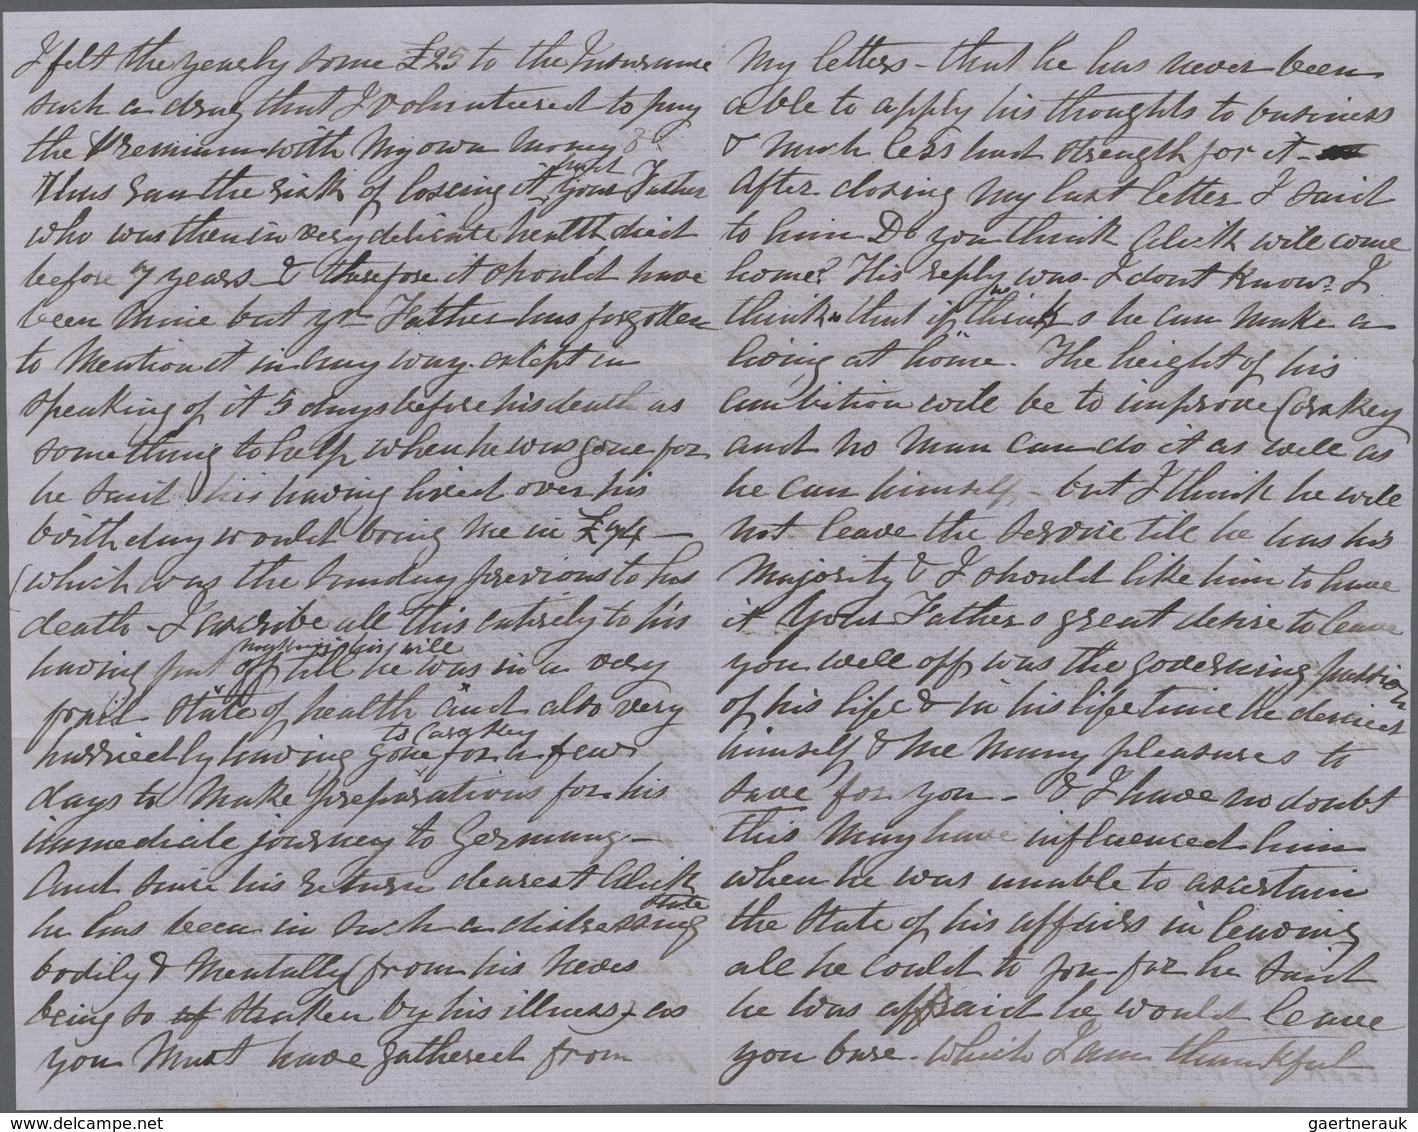 I felt the yearly some £25 to the Insurance
such a drag that I volunteered to pay
the Premium with my own money &
thus ran the risk of loseing it had your Father
who was then in very delicate health died
before 7 years & therefore it should have
been mine but yr Father has forgotten
to mention it in any way. except in
speaking of it 5 days before his death as
something to help when he was gone for
he said his having lived over his
birthday would bring me in £74 —
(which was the Sunday previous to his
death - I ascribe all this entirely to his
having put off making his will till he was in a very
frail state of health and also very
hurriedly having gone to Carskey for a few
days to make preparations for his
immediate journey to Germany —
And since his return dearest Alick
he has been in such a distressing state
bodily & mentally (from his
being so shaken by his illness) as
you must have gathered from
My letters - that he has never been
able to apply his thoughts to business
& much less had strength for it -
After closing my last letter I said
to him Do you think Alick will come
home? His reply was. I dont know. I
think that if he can make a
living at home. The height of his
ambition will be to improve Carskey
and no man can do it as well as
he can himself - but I think he will
not leave the service till he has his
Majority & I should like him to have
it Your Fathers great desire to leave
you well off was the governing passion
of his life & in his lifetime he denied
himself & me many pleasures to
save for you - & I have no doubt
this may have influenced him
when he was unable to ascertain
the state of his affairs in leaving
all he could to you for he said
he was affraid he would leave
you bare. which I am thankful
gaertnerauk